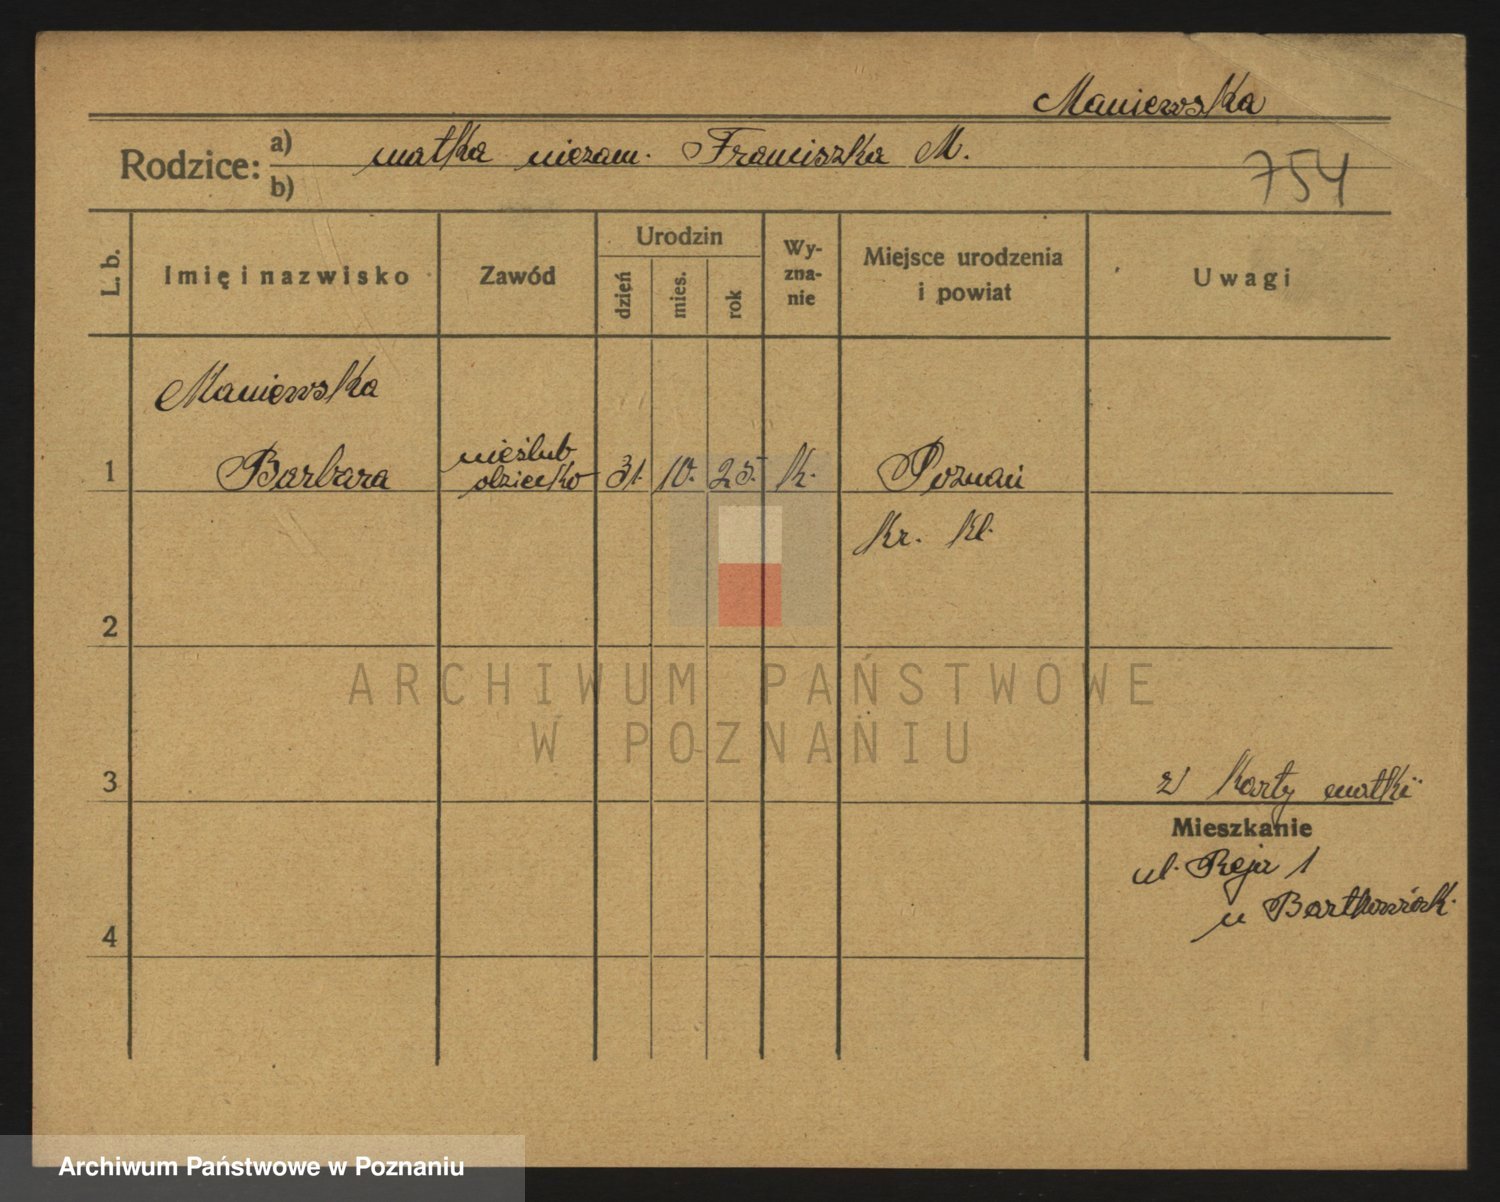 Maniewska
Rodzice: a) matka niezam. Franciszka M.
b)
754
L. b.
Imię i nazwisko
Zawód
Urodzin
dzień
mies.
rok
Wy-
zna-
nie
Miejsce urodzenia
i powiat
Uwagi
Maniewska
1 Barbara
nieślub
dziecko
31. 10. 25. k. Poznań
Kr. kl.
2
ARCHIWUM PAŃSTWOWE
W POZNANIU
3
z karty matki
Mieszkanie
ul. Reja 1
u Bartkowiak.
4
Archiwum Państwowe w Poznaniu